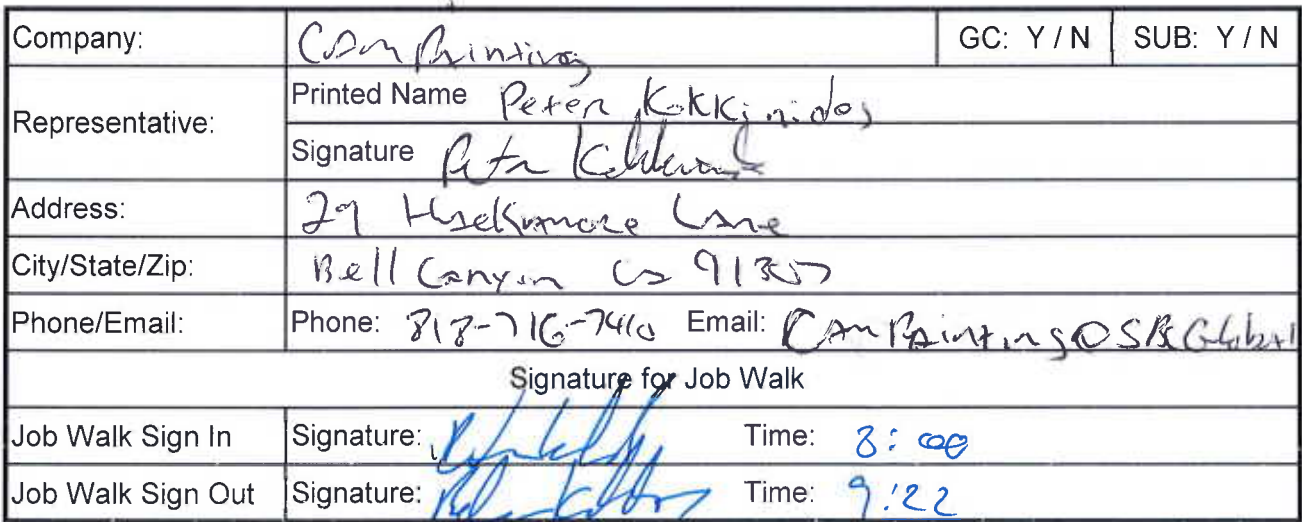 Company: CAM Painting GC: Y / N SUB: Y / N
Representative: Printed Name Peter Kokkinidos
Signature
Address: 29 Hackamore Lane
City/State/Zip: Bell Canyon Ca 91307
Phone/Email: Phone: 818-716-7410 Email: CAM Painting@SBCGlobal
Signature for Job Walk
Job Walk Sign In Signature: Time: 8:00
Job Walk Sign Out Signature: Time: 9:22